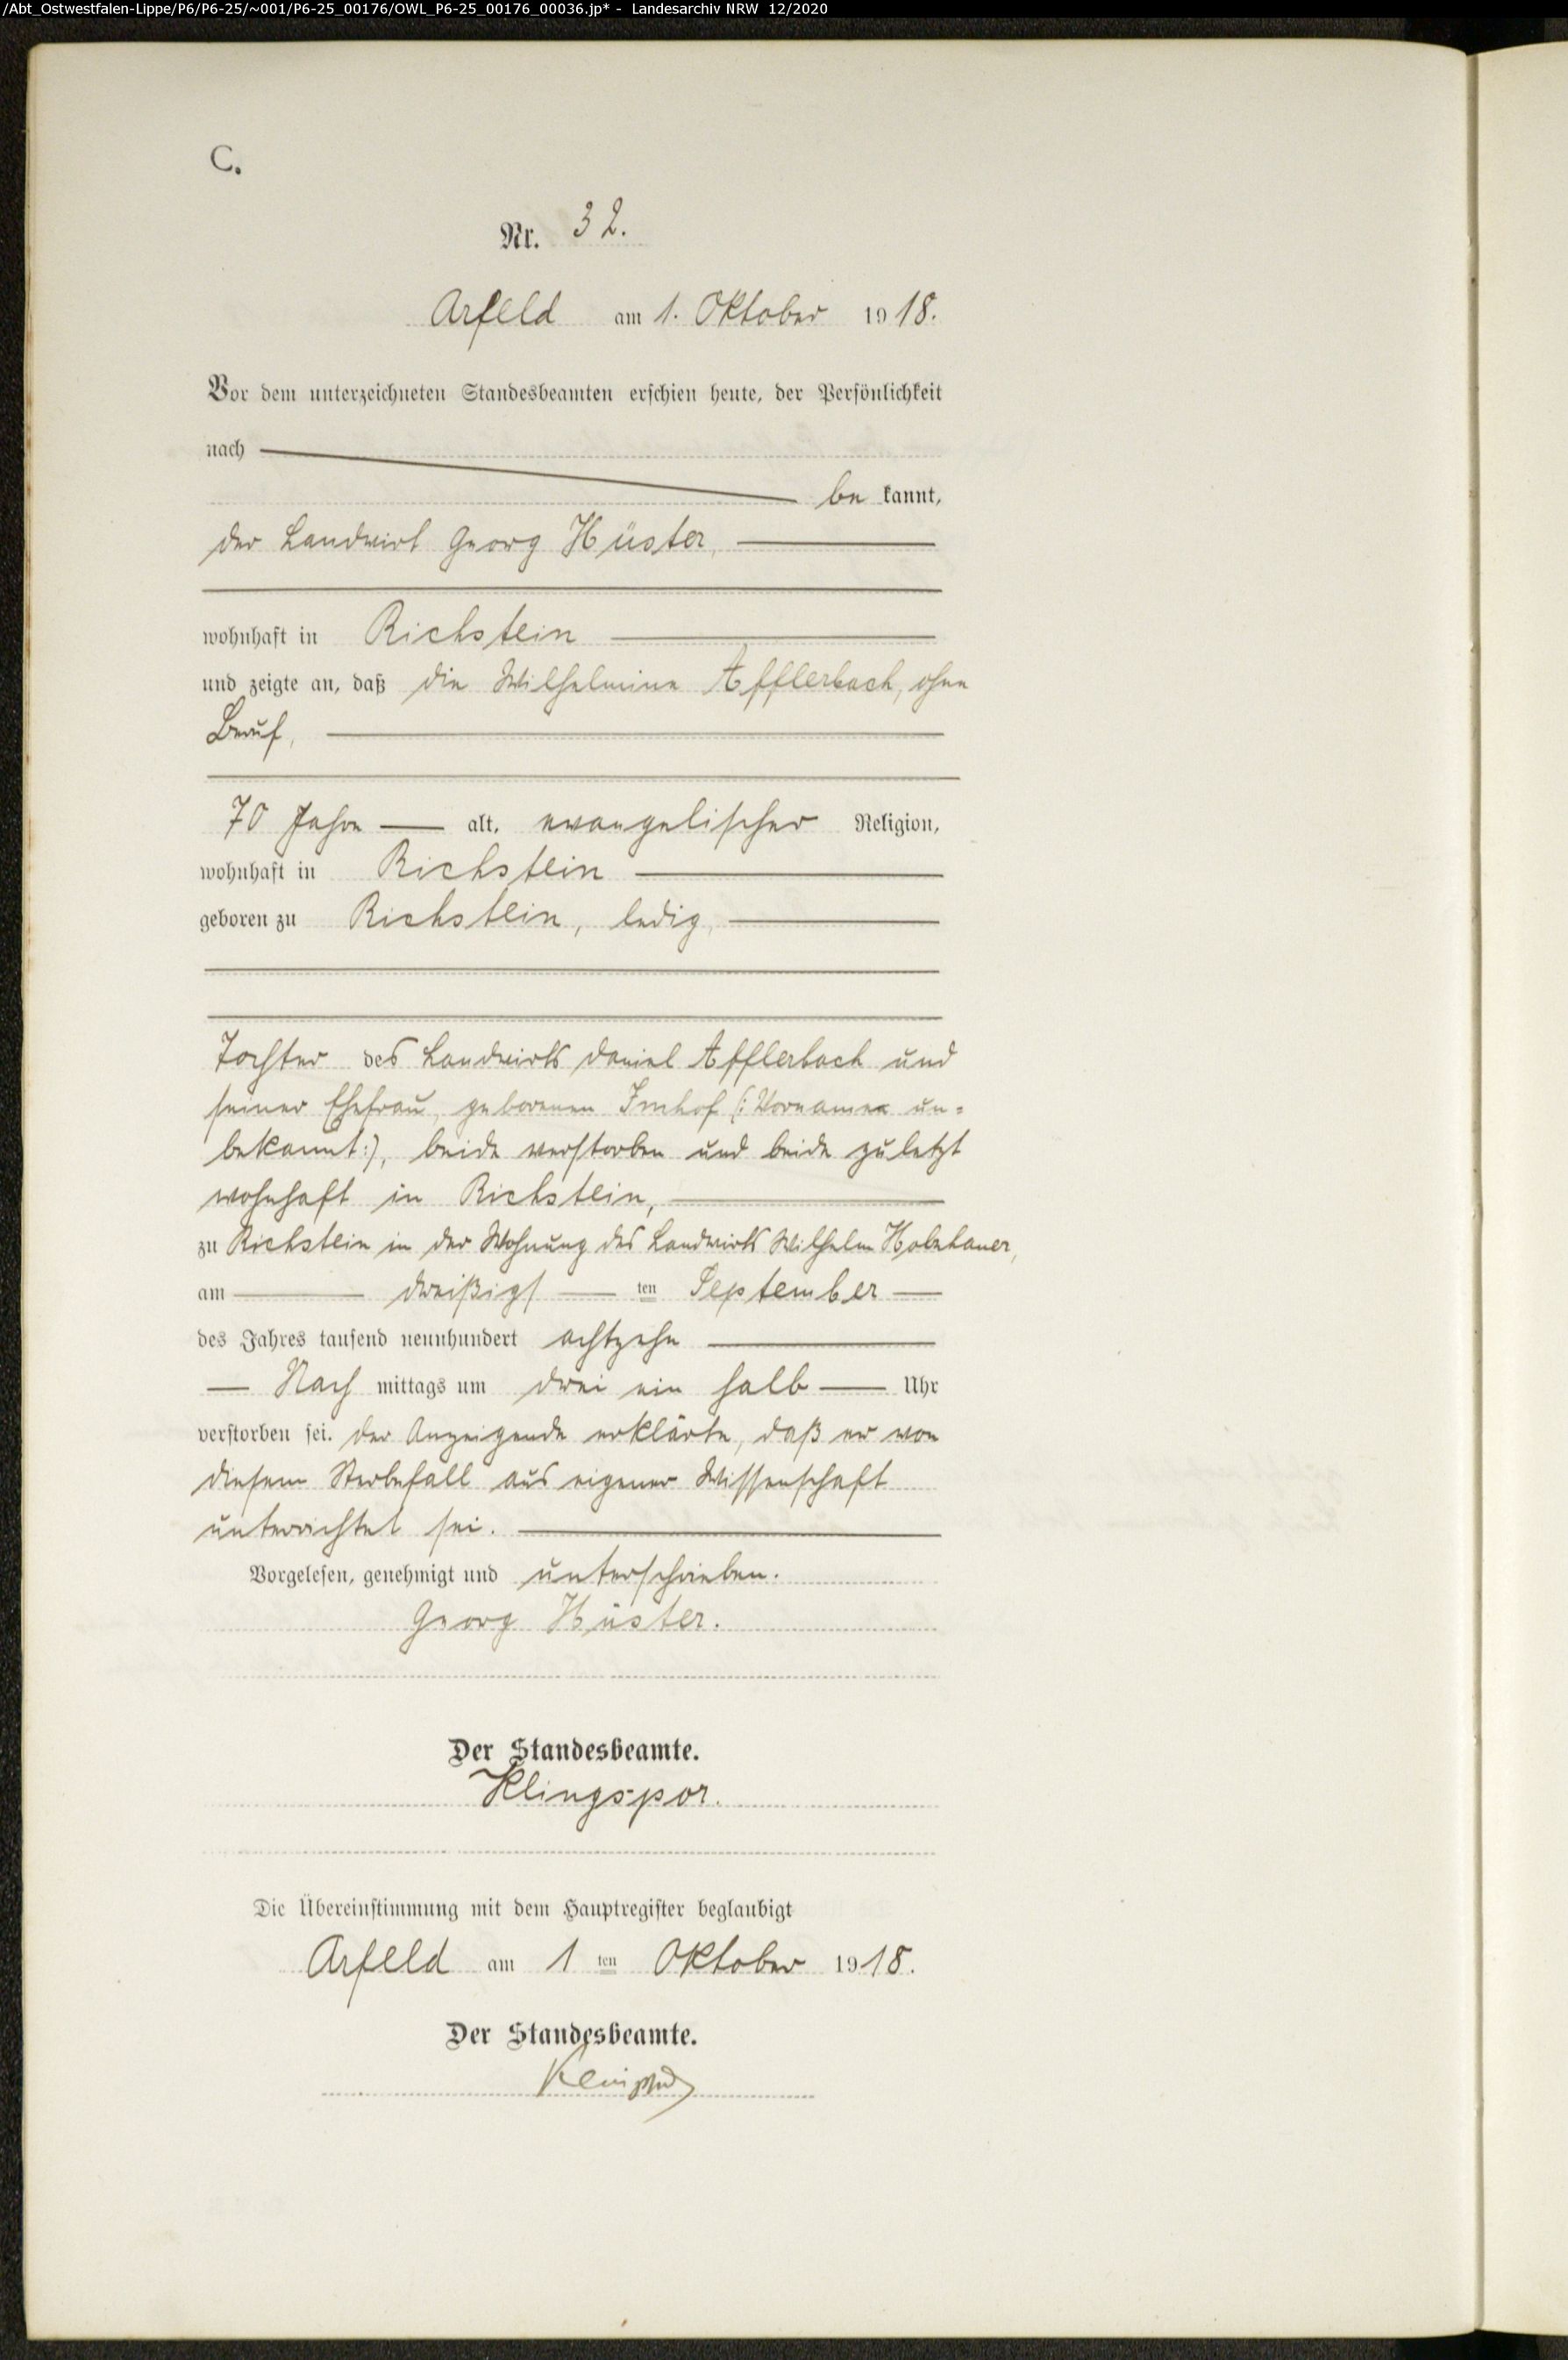 /Abt_Ostwestfalen-Lippe/P6/P6-25/~001/P6-25_00176/OWL_P6-25_00176_00036.jp* - Landesarchiv NRW 12/2020
C.
Nr. 32.
Arfeld am 1. Oktober 1918.
Vor dem unterzeichneten Standesbeamten erschien heute, der Persönlichkeit
nach
be kannt,
der Landwirt Georg Hüster,
wohnhaft in Richstein
und zeigte an, daß die Wilhelmine Afflerbach, ohne
Beruf,
70 Jahre alt, evangelischer Religion,
wohnhaft in Richstein
geboren zu Richstein, ledig,
Tochter des Landwirts Daniel Afflerbach und
seiner Ehefrau, geborenen Imhof (: Vornamen un=
bekannt:), beide verstorben und beide zuletzt
wohnhaft in Richstein,
zu Richstein in der Wohnung des Landwirts Wilhelm Holzhauer,
am dreißigs ten September
des Jahres tausend neunhundert achtzehn
Nach mittags um drei ein halb Uhr
verstorben sei. Der Anzeigende erklärte, daß er von
diesem Sterbefall aus eigener Wissenschaft
unterrichtet sei.
Vorgelesen, genehmigt und unterschrieben.
Georg Hüster.
Der Standesbeamte.
Klingspor.
Die Übereinstimmung mit dem Hauptregister beglaubigt
Arfeld am 1 ten Oktober 1918.
Der Standesbeamte.